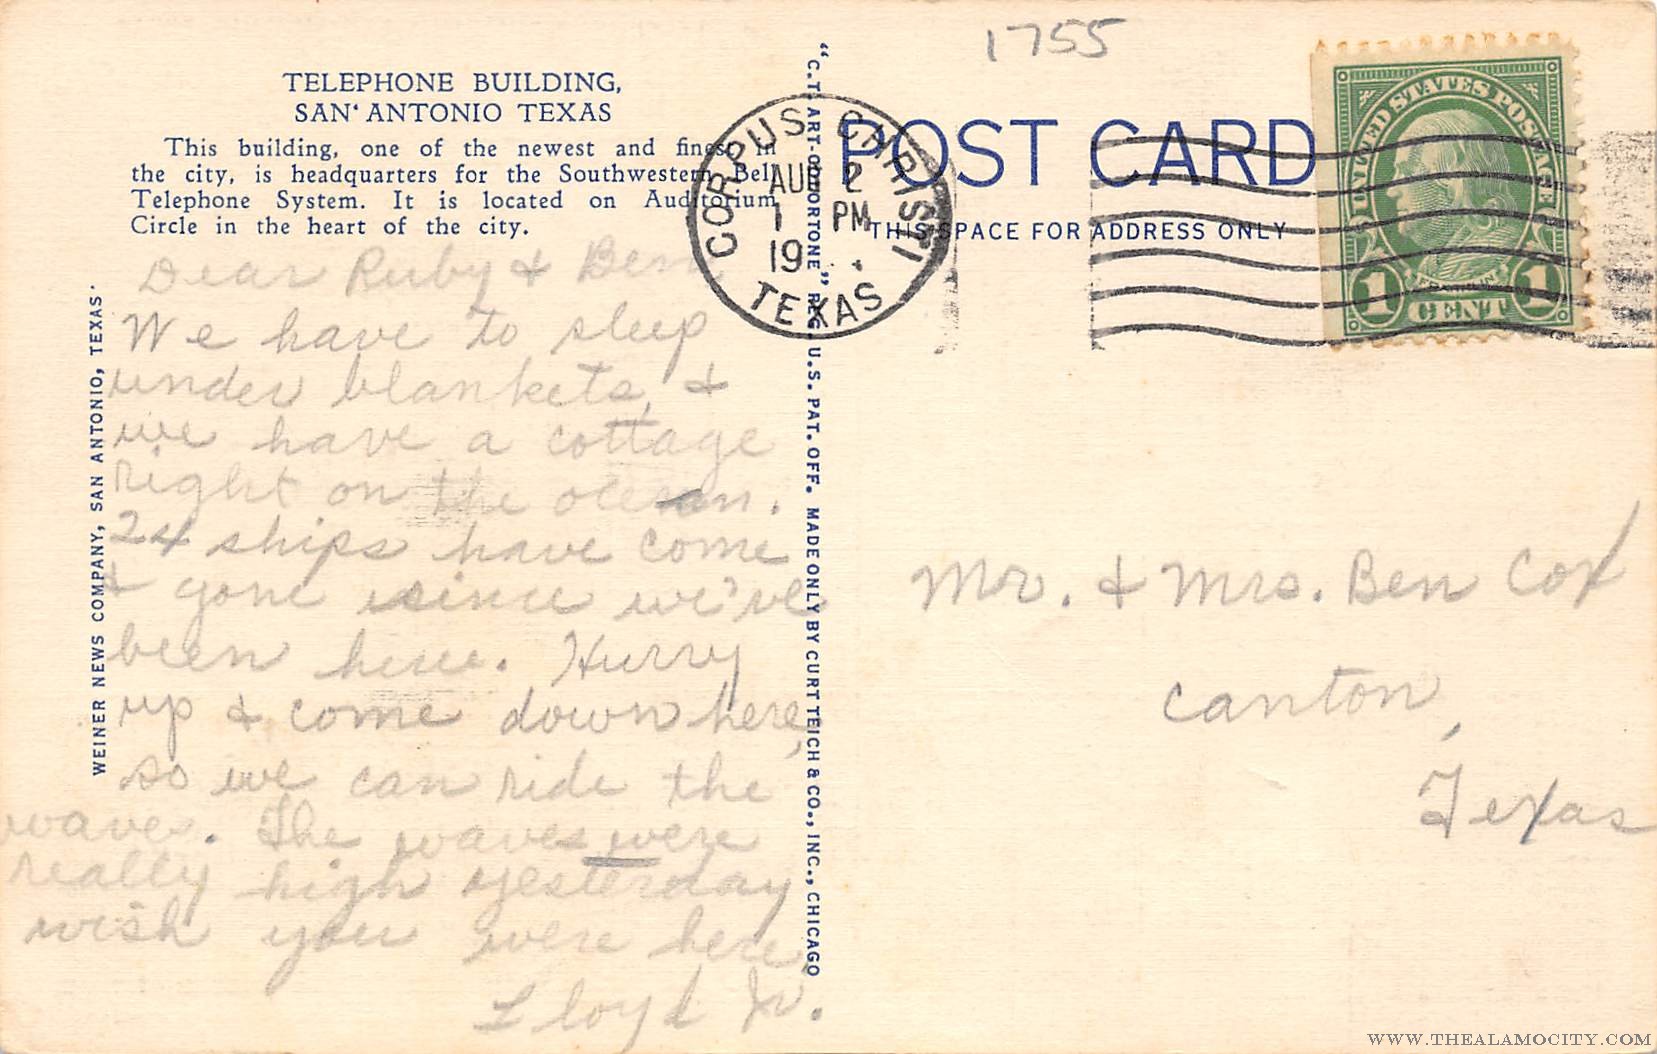 1755
TELEPHONE BUILDING,
SAN' ANTONIO TEXAS
This building, one of the newest and finest in
the city, is headquarters for the Southwestern Bell
Telephone System. It is located on Auditorium
Circle in the heart of the city.
Dear Ruby & Ben
We have to sleep
under blankets, &
we have a cottage
right on the ocean.
24 ships have come
& gone since we've
been here. Hurry
up & come down here,
so we can ride the
waves. The waves were
really high yesterday
wish you were here,
Lloyd Jr.
WEINER NEWS COMPANY, SAN ANTONIO, TEXAS'
"C.T. ART-COLORTONE" REG. U.S. PAT. OFF. MADE ONLY BY CURT TEICH & CO., INC., CHICAGO
CORPUS CHRISTI
AUG 2
1 PM
19
TEXAS
POST CARD
THIS SPACE FOR ADDRESS ONLY
UNITED STATES POSTAGE
FRANKLIN
1 CENT 1
Mr. & Mrs. Ben Cox
Canton,
Texas
WWW.THEALAMOCITY.COM